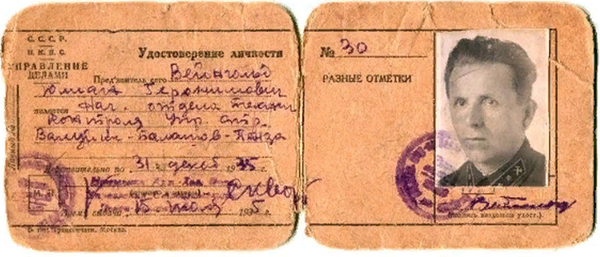 С. С. С. Р.
Н. К. П. С.
УПРАВЛЕНИЕ
ДЕЛАМИ
Удостоверение личности
Предъявитель сего Вейнгольд
Юлиан Иеронимович
является Нач. отдела техни
контроля Упр. стр.
Валуйки-Балашов-Пенза
Действительно по 31 декаб 1935
Время выдачи 15 мая 1935
№ 30
РАЗНЫЕ ОТМЕТКИ
Вейнгольд
(подпись владельца удост.)